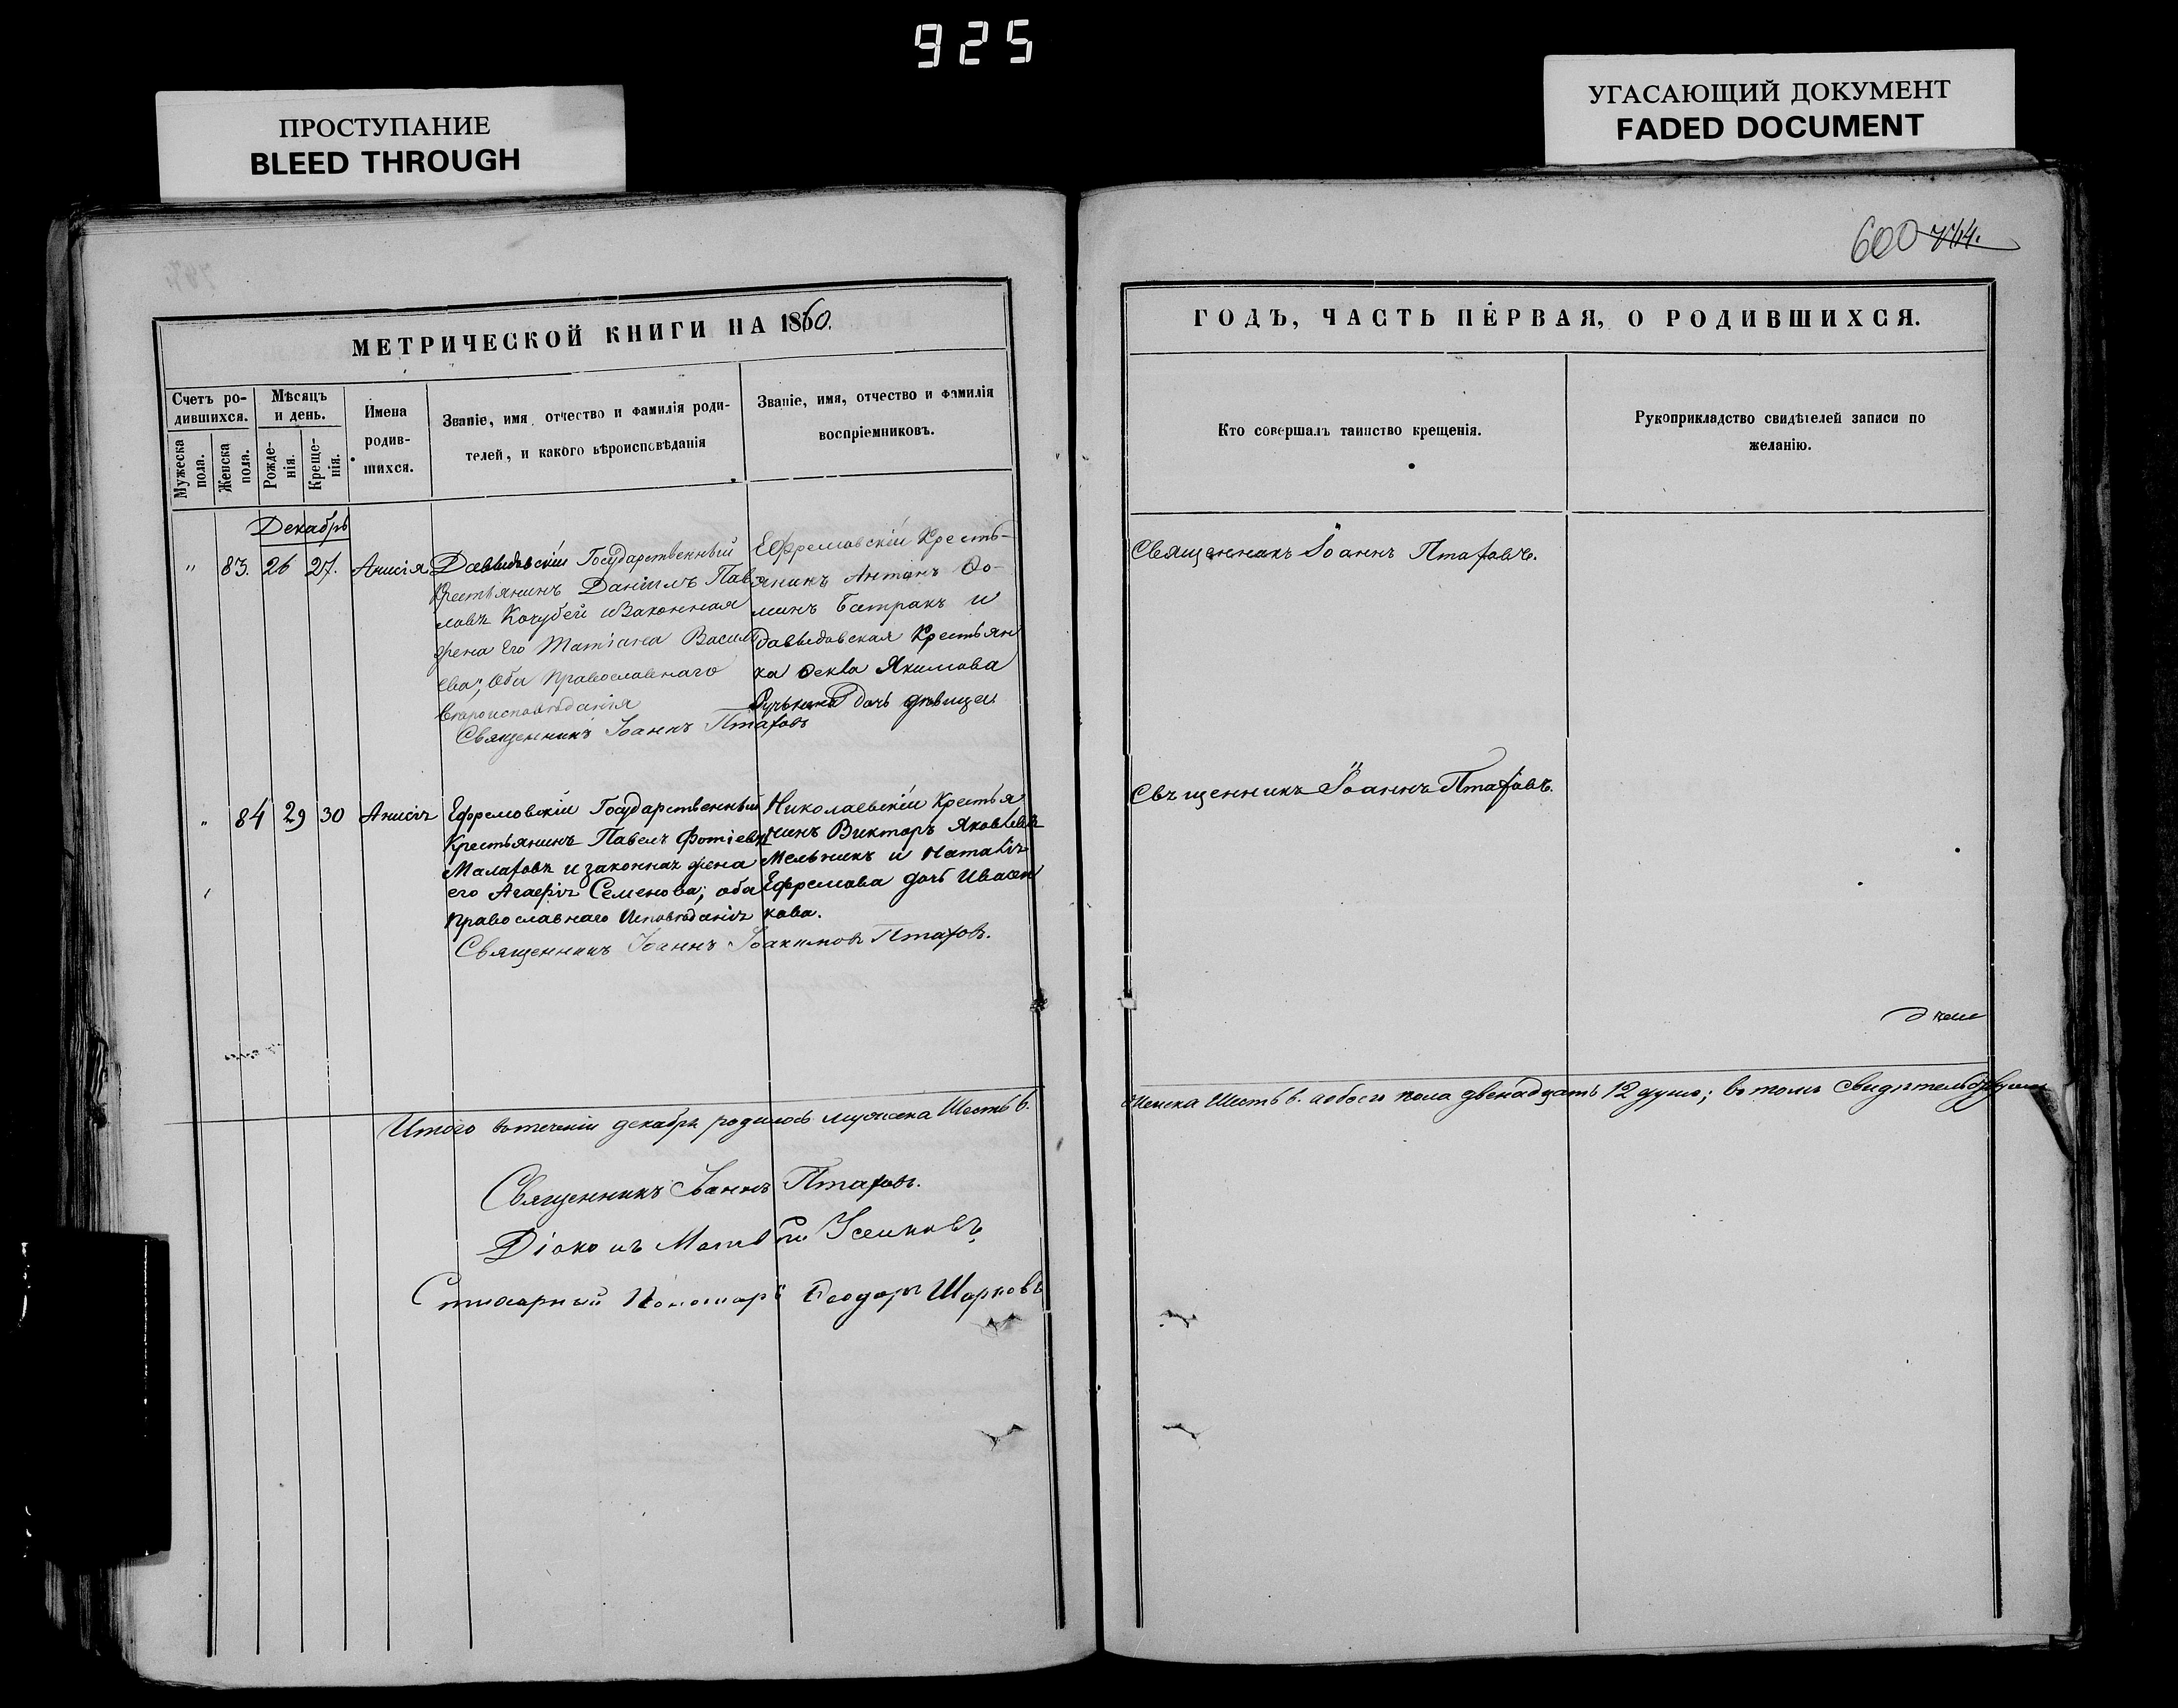 925
ПРОСТУПАНИЕ
BLEED THROUGH
УГАСАЮЩИЙ ДОКУМЕНТ
FADED DOCUMENT
600 744.
МЕТРИЧЕСКОЙ КНИГИ НА 1860.
Счетъ ро-
дившихся.
Мужеска
пола.
Женска
пола.
Мѣсяцъ
и день.
Рожде-
нія.
Креще-
нія.
Имена
родив-
шихся.
Званіе, имя, отчество и фамилія роди-
телей, и какого вѣроисповѣданія
Званіе, имя, отчество и фамилія
воспріемниковъ.
Декабрь
" 83. 26 27. Анисія
Давыдовскій Государственный
Крестьянинъ Даніилъ Пав
ловъ Кочубей и Законная
жена Его Татіана Васил
ева; Оба Православнаго
Вѣроисповѣданія
Священникъ Іоаннъ Птаховъ
Ефремовскій Кресть-
янинъ Антонъ Ѳо-
минъ Батракъ и
Давыдовская Крестьян
ка Ѳекла Якимова
дочь дѣвица
" 84 29 30 Анисія
Ефремовскій Государственный
Крестьянинъ Павелъ Фотіевъ
Малаховъ и законная жена
его Агафія Семенова; оба
Православнаго Исповѣданія
Священникъ Іоаннъ Іоакимовъ Птаховъ.
Николаевскій Крестья
нинъ Викторъ Яковлевъ
Мельникъ и Наталія
Ефремова дочь Ивасен
кова.
Итого въ теченіи декабря родилось мужеска Шесть 6.
Священникъ Іоаннъ Птаховъ.
Діаконъ Матвѣй Усенковъ
Стихарный Пономарь Ѳеодоръ Шарковъ
ГОДЪ, ЧАСТЬ ПЕРВАЯ, О РОДИВШИХСЯ.
Кто совершалъ таинство крещенія.
Рукоприкладство свидѣтелей записи по
желанію.
Священникъ Іоаннъ Птаховъ.
Священникъ Іоаннъ Птаховъ.
женска Шесть 6. и обоего пола двенадцать 12 душъ; въ томъ Свидѣтельствуемъ